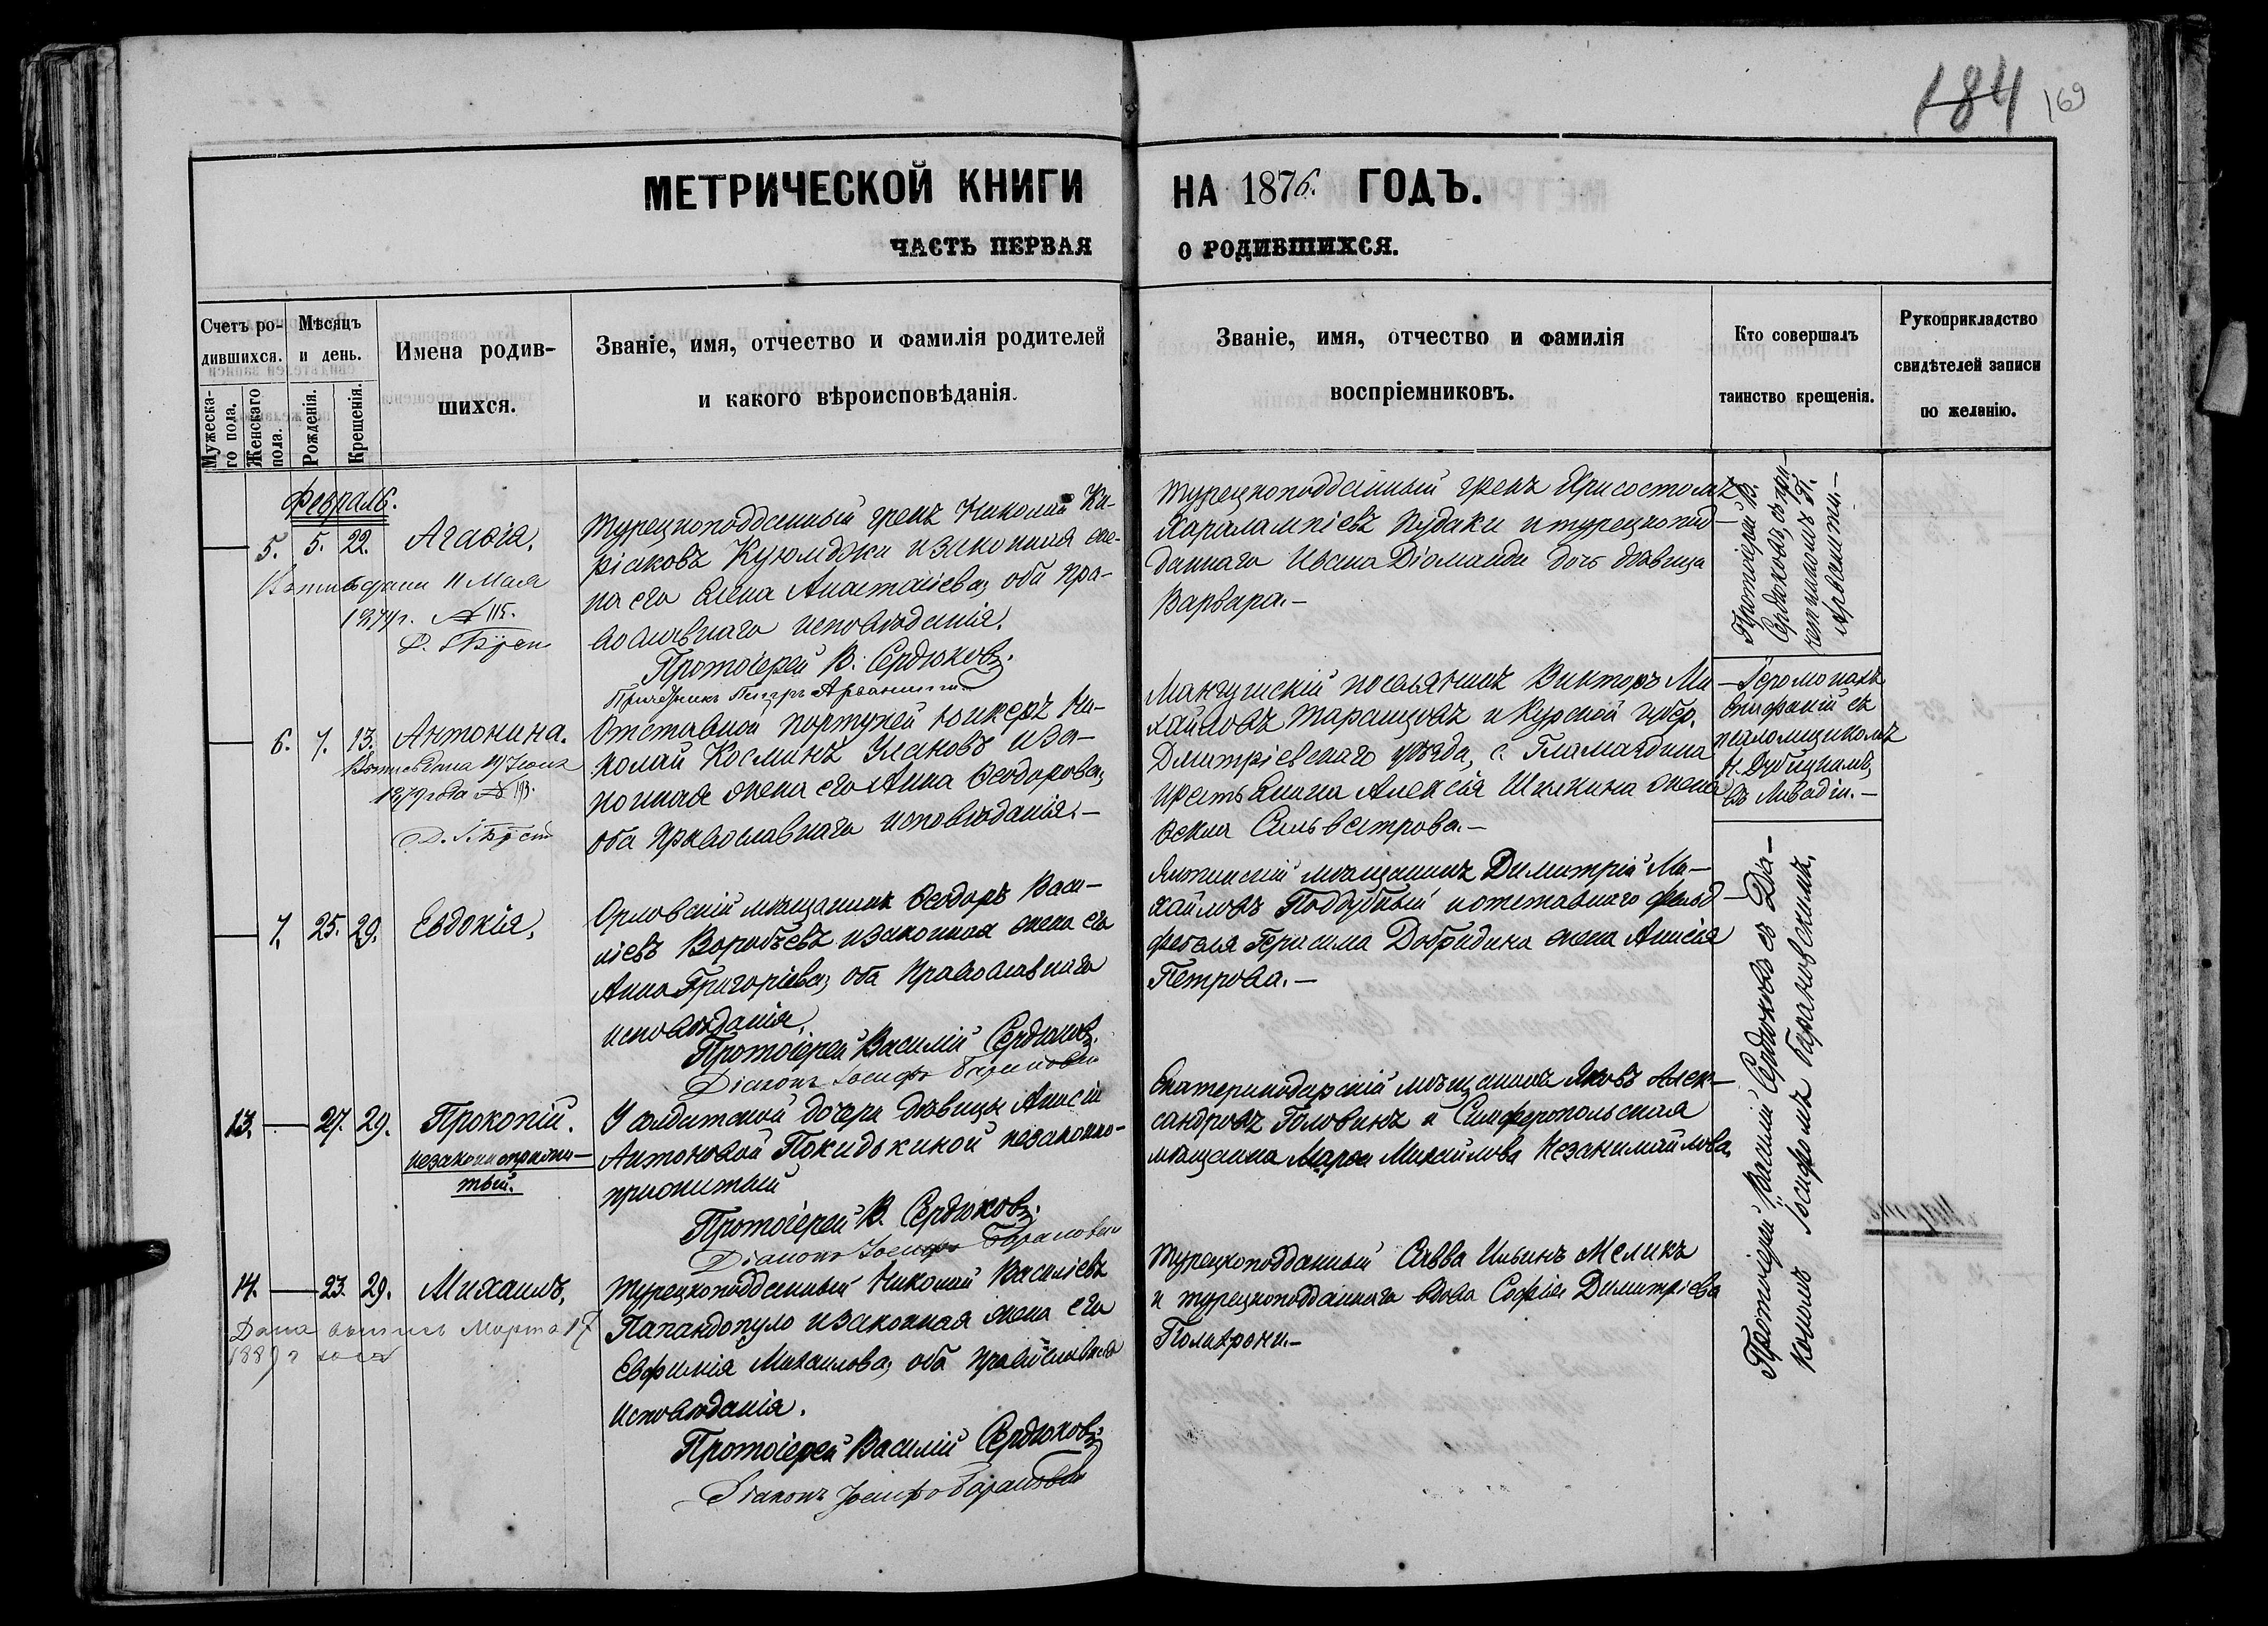 184 169
МЕТРИЧЕСКОЙ КНИГИ НА 1876. ГОДЪ.
ЧАСТЬ ПЕРВАЯ О РОДИВШИХСЯ.
Счетъ ро-
дившихся.
Мужеска-
го пола.
Женскаго
пола.
Мѣсяцъ
и день.
Рожденія.
Крещенія.
Имена родив-
шихся.
Званіе, имя, отчество и фамилія родителей
и какого вѣроисповѣданія.
Званіе, имя, отчество и фамилія
воспріемниковъ.
Кто совершалъ
таинство крещенія.
Рукоприкладство
свидѣтелей записи
по желанію.
Февраль.
5. 5. 22. Агафія.
11 Мая
№ 115.
Турецкоподданный грекъ Николай Ки-
ріаковъ Куюмджи и законная же-
на его Анна Анастасіева, оба пра-
вославнаго исповѣданія.
Протоіерей В. Сердюковъ.
Турецкоподданный грекъ
Харалампіевъ Пудаки и турецкопод-
даннаго Ивана Діоманди дочь дѣвица
Варвара.-
Протоіерей В.
Сердюковъ, съ при-
четникомъ П.
Арванити.-
6. 7. 13. Антонина.
1879 года № 193.
Отставной портупей юнкеръ Ни-
колай Косминъ Улановъ и за-
конная жена его Анна Ѳеодорова,
оба православнаго исповѣданія.-
Мангушскій поселянинъ Викторъ Ми-
хайловъ Таранцовъ и Курской губер.
Дмитріевскаго уѣзда, с.
крестьянина Алексія Шишкина жена
Ѳекла Сильвестрова.-
Іеромонахъ
Епифаній съ
псаломщикомъ
Н. Дубицкимъ,
въ Ливадіи.-
7. 25. 29. Евдокія.
Орловскій мѣщанинъ Ѳеодоръ Васи-
ліевъ Воробьевъ и законная жена его
Анна Григоріева, оба православнаго
исповѣданія.
Протоіерей Василій Сердюковъ.
Діаконъ Іосифъ Барановскій
Ялтинскій мѣщанинъ Димитрій Ми-
хайловъ Поддубный и отставнаго фельд-
фебеля Герасима Добридина жена Анисія
Петрова.-
13. 27. 29. Прокопій.
незаконноприжи-
тый.
У солдатской дочери дѣвицы Анисіи
Антоновой Покидькиной незаконно-
прижитый
Протоіерей В. Сердюковъ.
Діаконъ Іосифъ Барановскій
Екатеринодарскій мѣщанинъ Яковъ Алек-
сандровъ Головинъ и Симферопольская
мѣщанка Марѳа Михайлова Незанимайлова.
14. 23. 29. Михаилъ.
Дана выпись Марта 17
Турецкоподданный Николай Василіевъ
Папандопуло и законная жена его
Евфимія Михаилова, оба православнаго
исповѣданія.
Протоіерей Василій Сердюковъ.
Діаконъ Іосифъ Барановскій
Турецкоподданный Савва Ильинъ Меликъ
и турецкоподданнаго вдова Софія Димитріева
Полихрони.-
Протоіерей Василій Сердюковъ съ Діа-
кономъ Іосифомъ Барановскимъ.